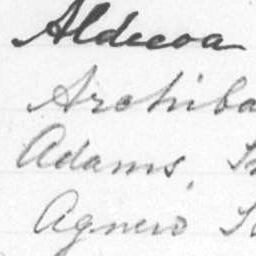 Aldecoa
Archiba
Adams,
Agnew